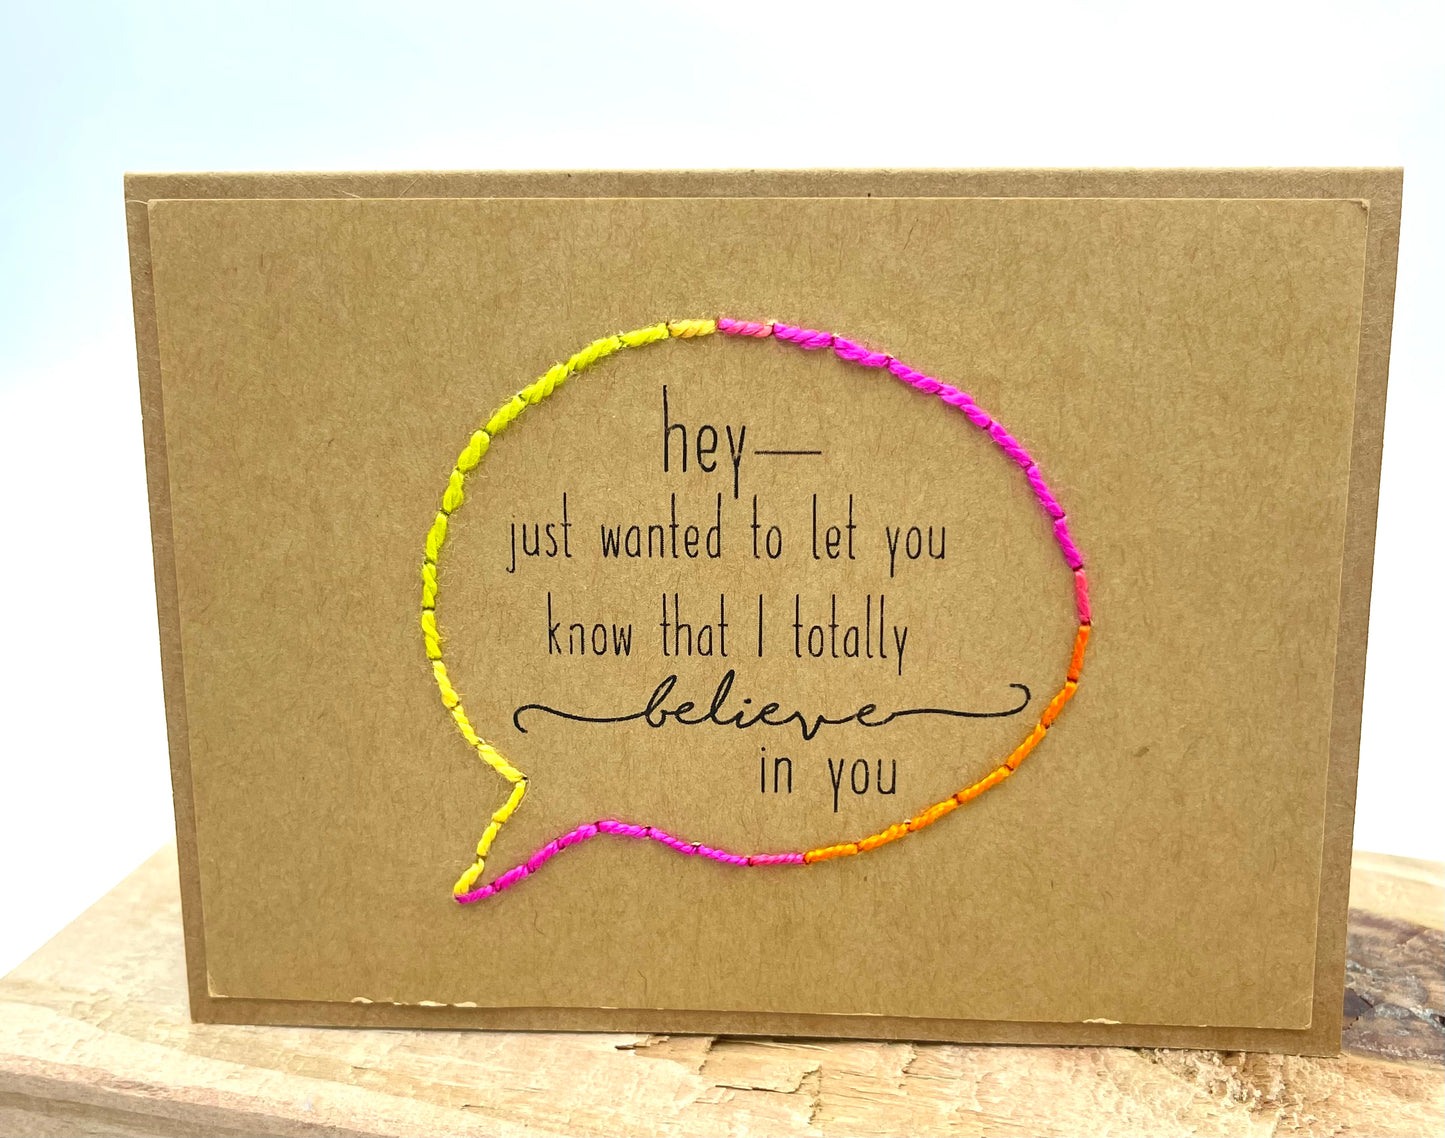 hey—
just wanted to let you
know that I totally
believe
in you